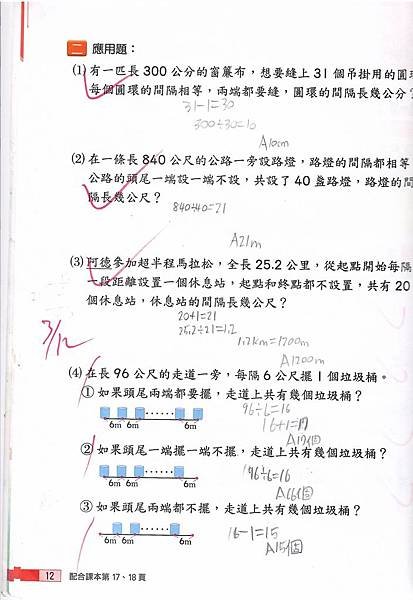 二 應用題：
(1) 有一匹長 300 公分的窗簾布，想要縫上 31 個吊掛用的圓
每個圓環的間隔相等，兩端都要縫，圓環的間隔長幾公分？
31-1=30
300÷30=10
A10cm
(2) 在一條長 840 公尺的公路一旁設路燈，路燈的間隔都相等
公路的頭尾一端設一端不設，共設了 40 盞路燈，路燈的間
隔長幾公尺？
840÷40=21
A21m
(3) 阿德參加超半程馬拉松，全長 25.2 公里，從起點開始每隔
一段距離設置一個休息站，起點和終點都不設置，共有 20
個休息站，休息站的間隔長幾公尺？
20+1=21
25.2÷21=1.2
1.2km=1200m
A1200m
3/12
(4) 在長 96 公尺的走道一旁，每隔 6 公尺擺 1 個垃圾桶。
① 如果頭尾兩端都要擺，走道上共有幾個垃圾桶？
96÷6=16
16+1=17
A17個
6m 6m 6m 6m
② 如果頭尾一端擺一端不擺，走道上共有幾個垃圾桶？
96÷6=16
A16個
6m 6m 6m 6m
③ 如果頭尾兩端都不擺，走道上共有幾個垃圾桶？
16-1=15
A15個
6m 6m 6m 6m
12 配合課本第 17、18 頁